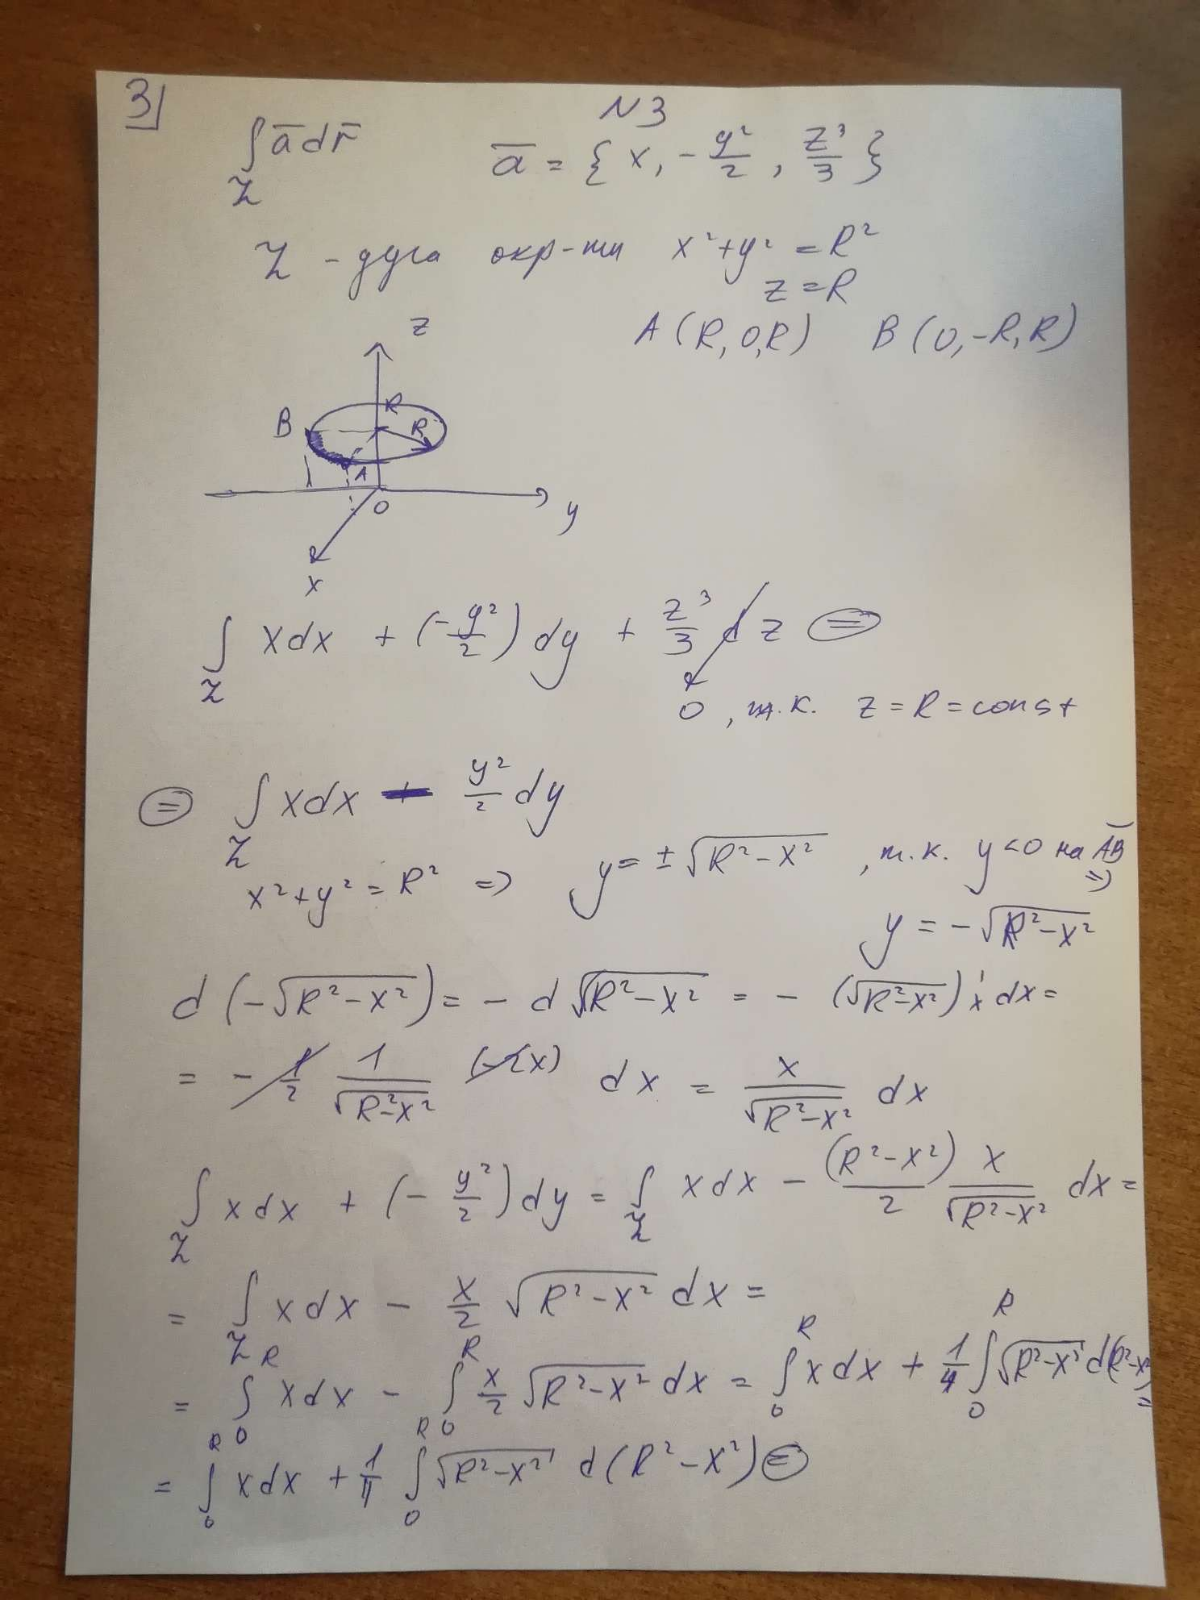 3
N3
∫_L a̅ d r̅    a̅ = { x, -y²/2, z³/3 }
L - дуга окр-ти x²+y² = R²
z = R
A (R, 0, R)  B (0, -R, R)
z
B R R
A
O y
x
∫_L xdx + (-y²/2) dy + z³/3 dz ⊜
0, т.к. z = R = const
⊜ ∫_L xdx - y²/2 dy
x²+y² = R² => y = ±√(R²-x²), т.к. y<0 на AB =>
y = -√(R²-x²)
d(-√(R²-x²)) = -d√(R²-x²) = -(√(R²-x²))'ₓ dx =
= - 1/2 1/√(R²-x²) (-2x) dx = x/√(R²-x²) dx
∫_L xdx + (-y²/2) dy = ∫_L xdx - (R²-x²)/2 x/√(R²-x²) dx =
= ∫_L xdx - x/2 √(R²-x²) dx =
= ∫₀ᴿ xdx - ∫₀ᴿ x/2 √(R²-x²) dx = ∫₀ᴿ xdx + 1/4 ∫₀ᴿ √(R²-x²) d(R²-x²) =
= ∫₀ᴿ xdx + 1/4 ∫₀ᴿ √(R²-x²) d(R²-x²) ⊜